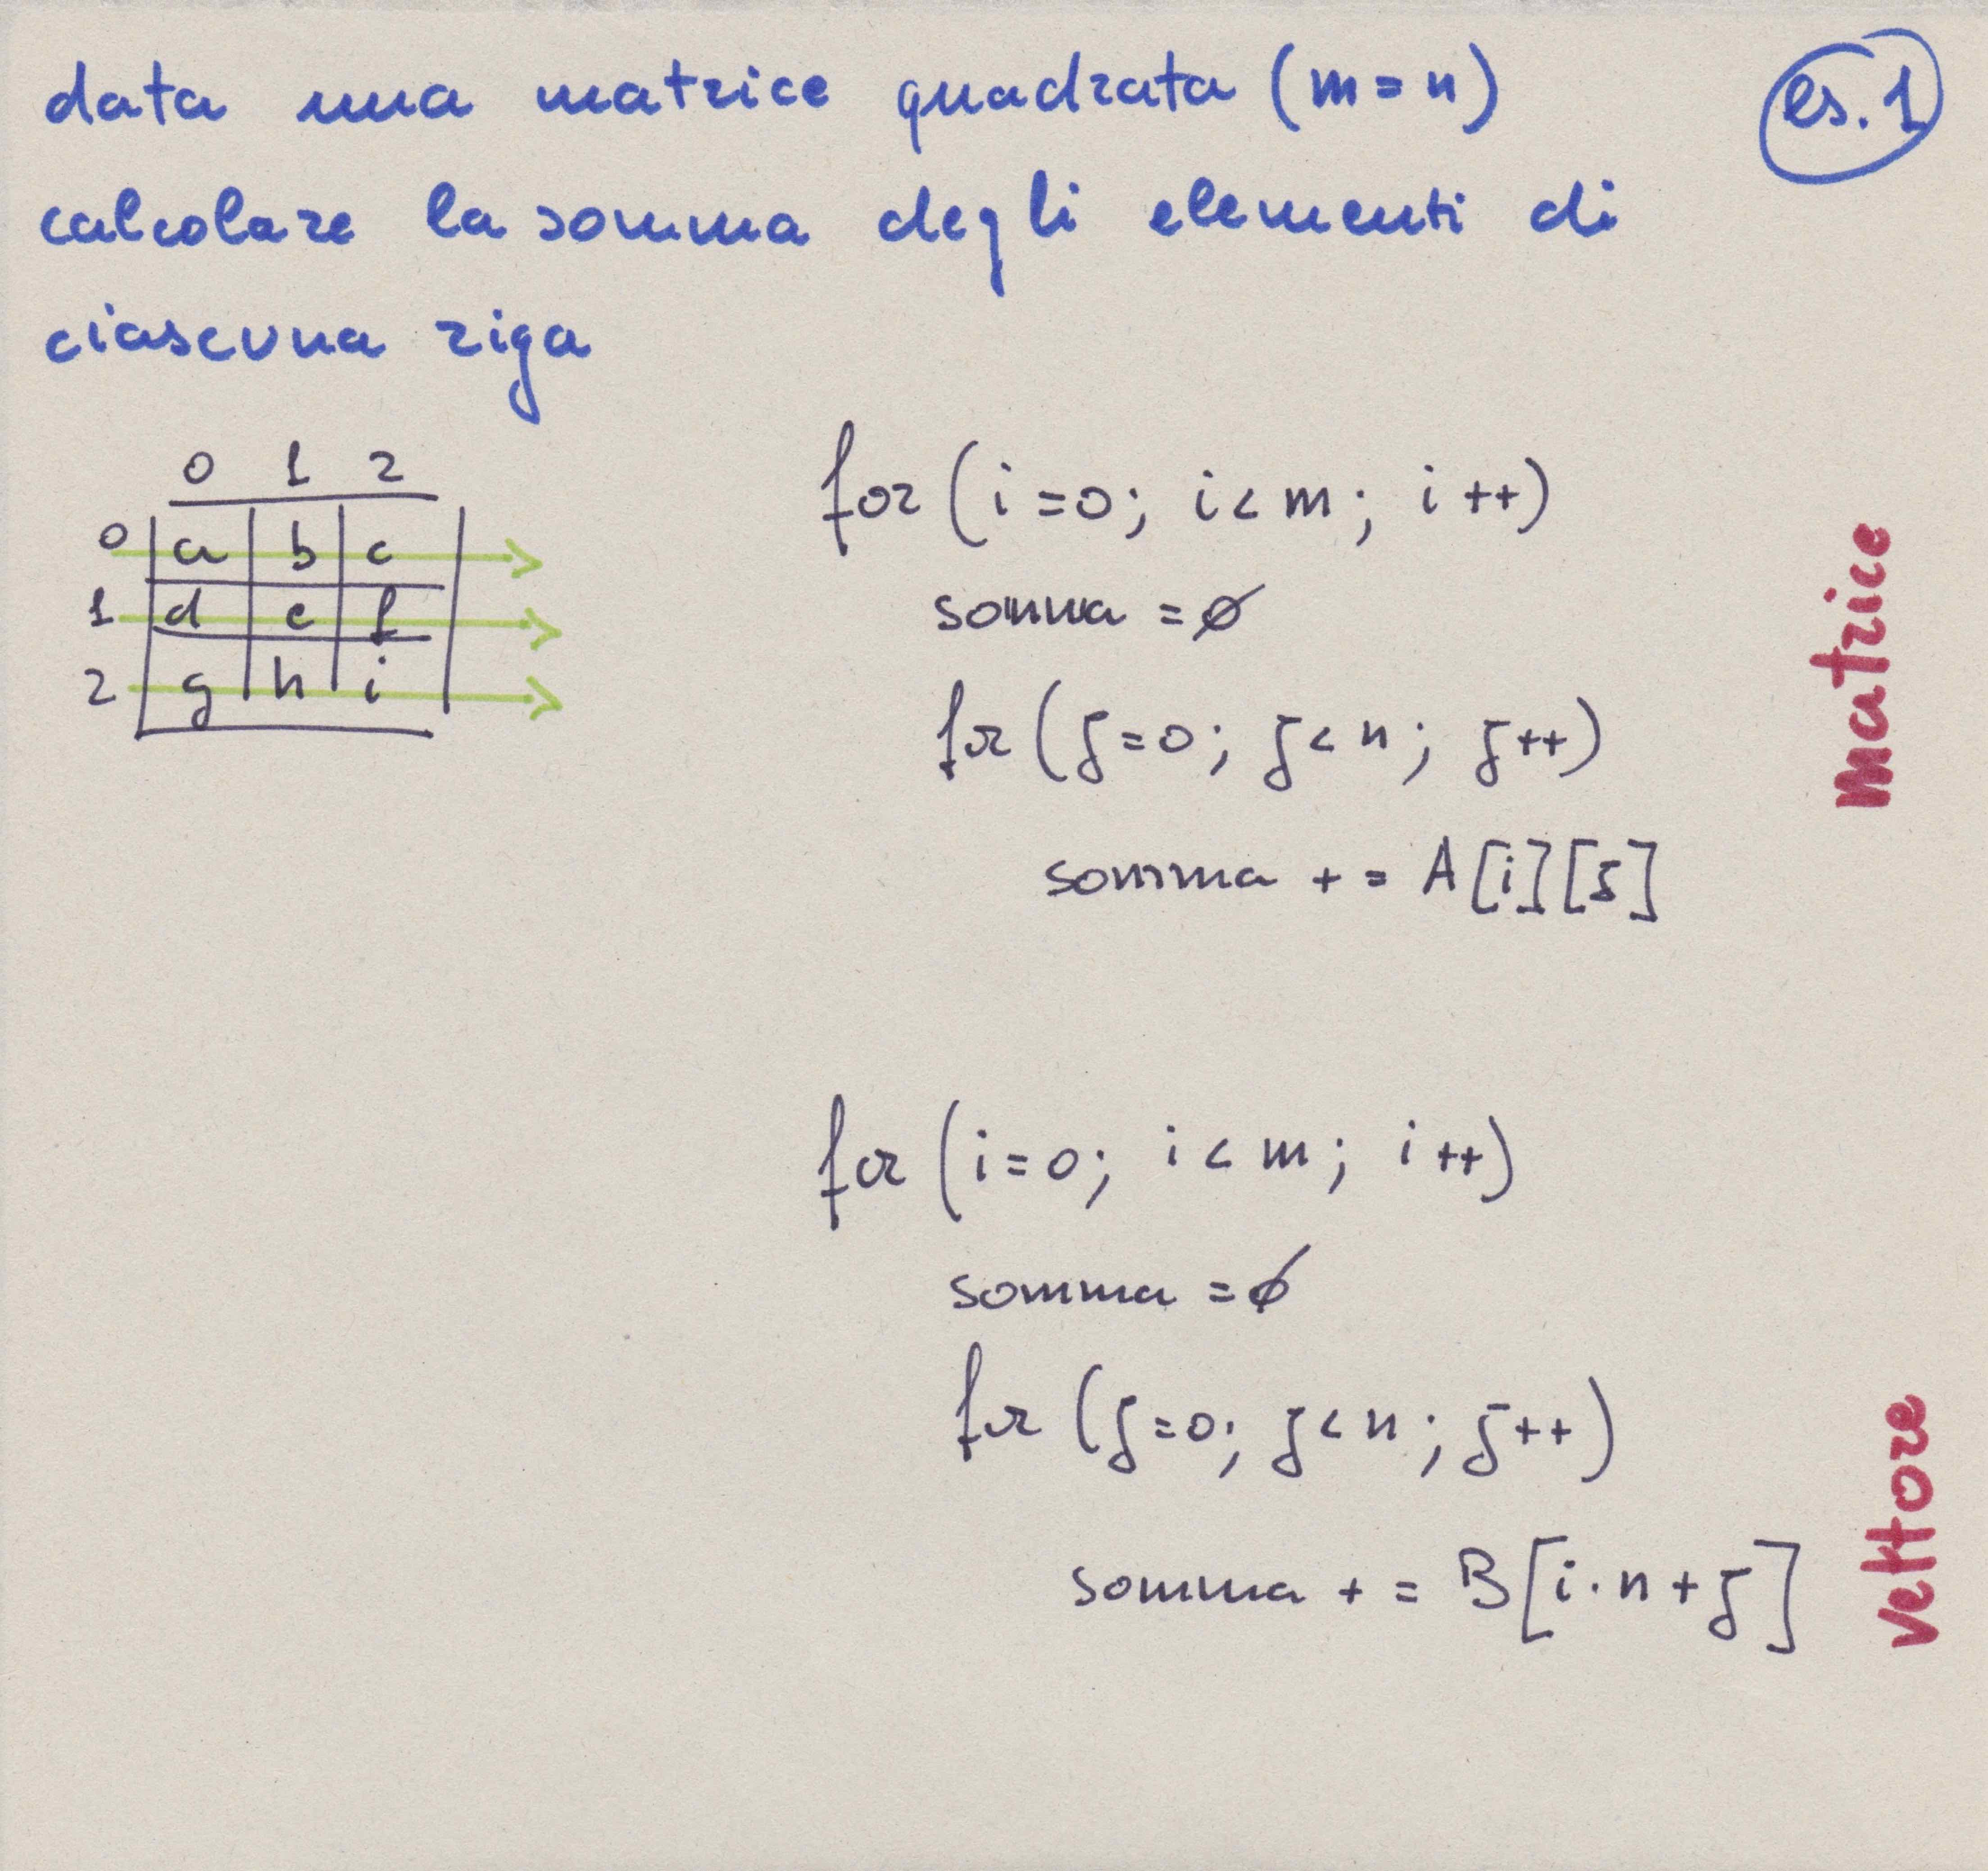 data una matrice quadrata (m=n)
es. 1
calcolare la somma degli elementi di
ciascuna riga
0 1 2
0 a b c
1 d e f
2 g h i
for (i=0; i<m; i++)
somma =ø
for (j=0; j<n; j++)
somma += A[i][j]
matrice
for (i=0; i<m; i++)
somma =ø
for (j=0; j<n; j++)
somma += B[i·n+j]
vettore